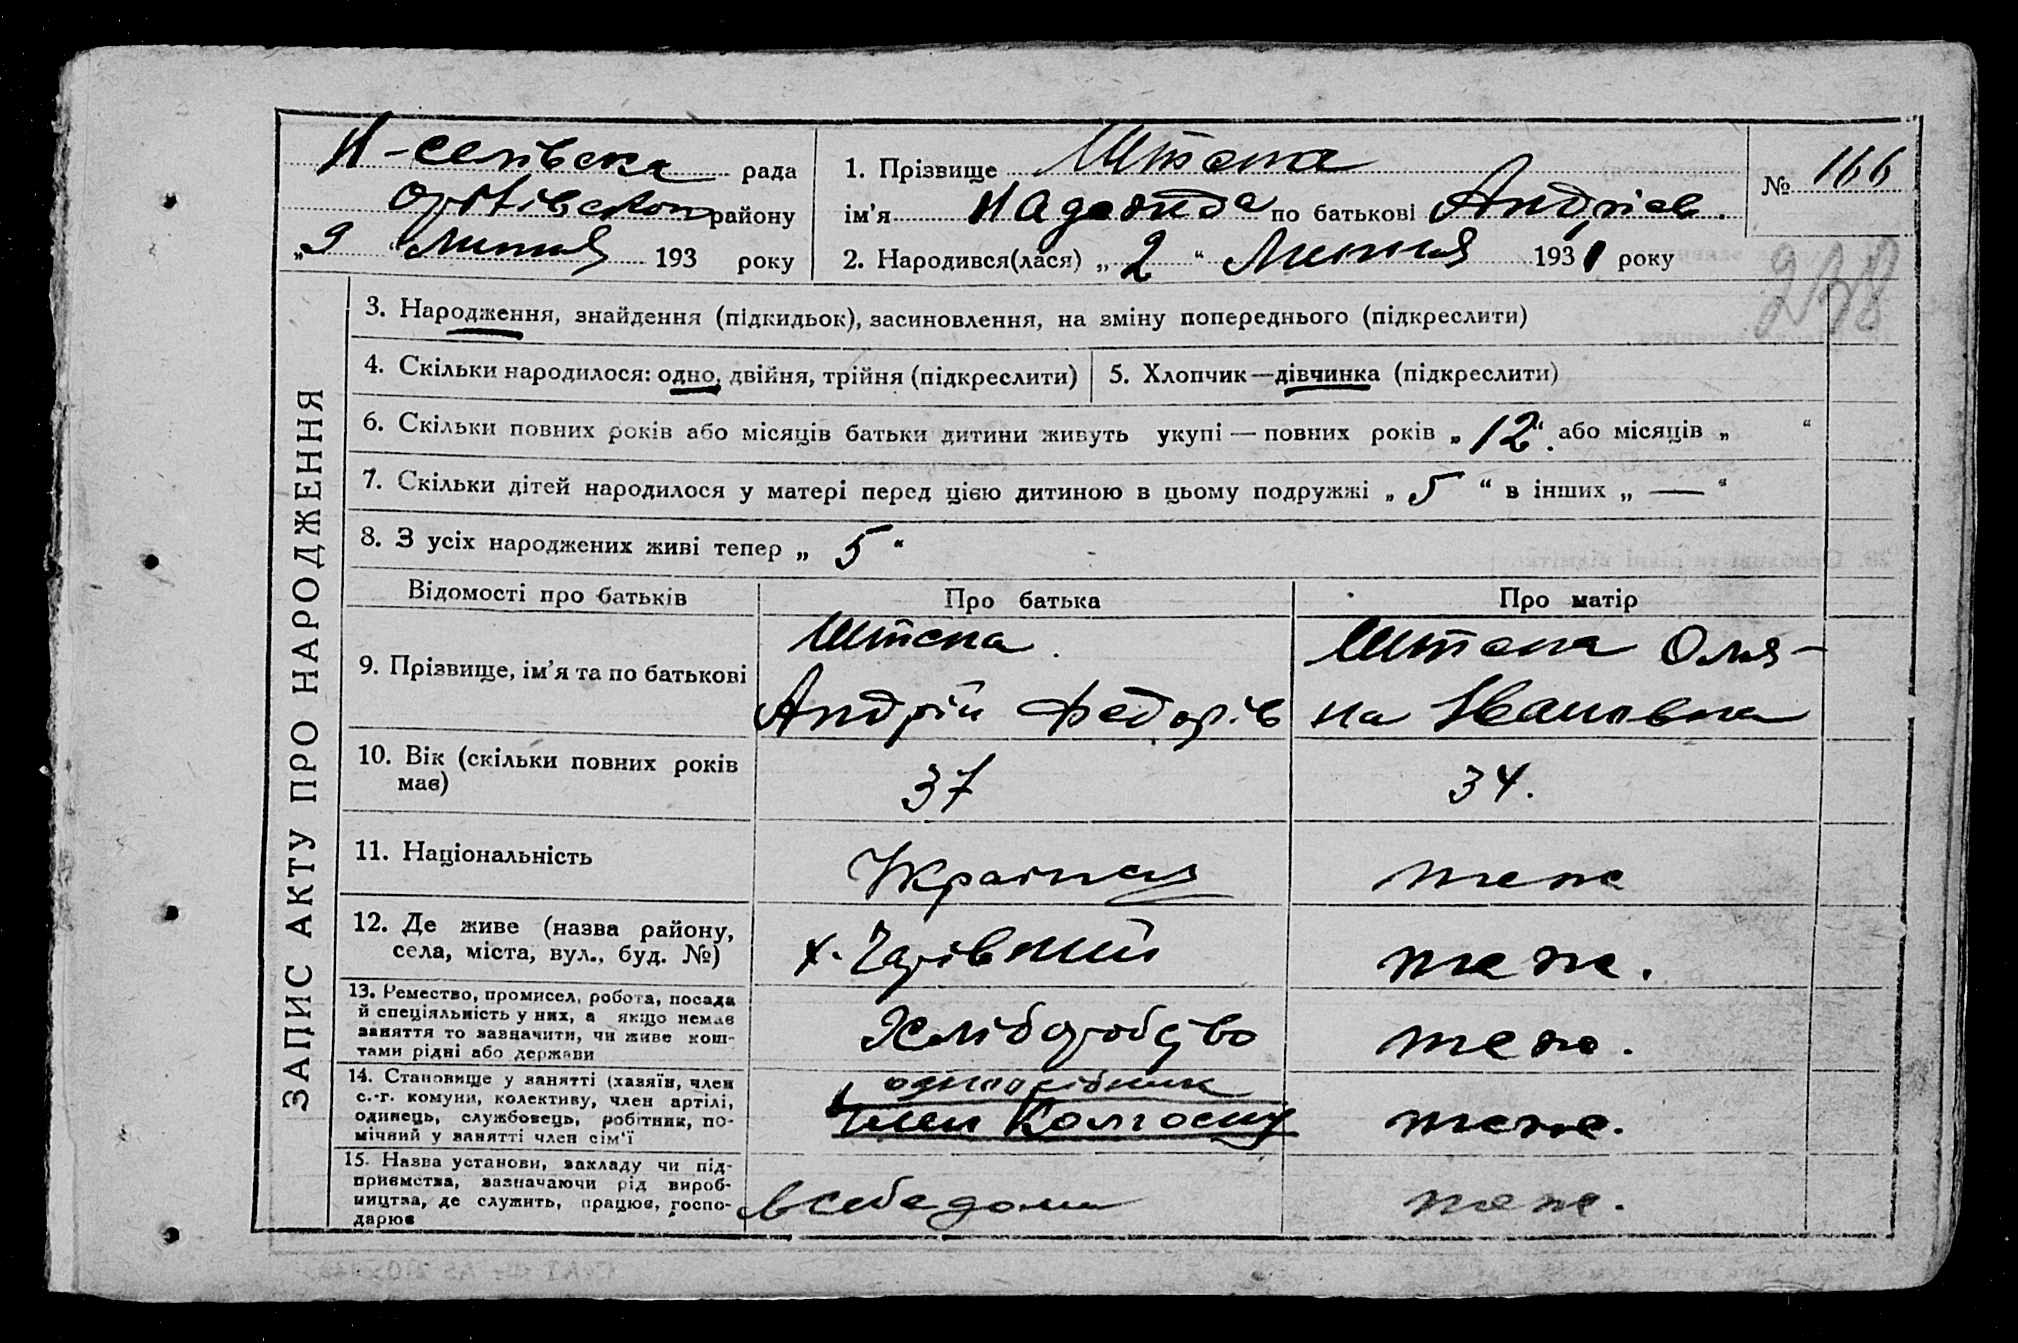 Н-селівска рада
району
„9 “ Липня 193 року
1. Прізвище Штепа
ім’я Надежда по батькові Андріев.
2. Народився(лася) „ 2 “ Липня 1931 року
№ 166
238
ЗАПИС АКТУ ПРО НАРОДЖЕННЯ
3. Народження, знайдення (підкидьок), засиновлення, на зміну попереднього (підкреслити)
4. Скільки народилося: одно, двійня, трійня (підкреслити)
5. Хлопчик—дівчинка (підкреслити)
6. Скільки повних років або місяців батьки дитини живуть укупі — повних років „ 12 “. або місяців „ “
7. Скільки дітей народилося у матері перед цією дитиною в цьому подружжі „ 5 “ в інших „ — “
8. З усіх народжених живі тепер „ 5 “
Відомості про батьків
Про батька
Про матір
9. Прізвище, ім’я та по батькові
Штепа
Андрій Федорів
Штепа Оля-
на Ивановна
10. Вік (скільки повних років
має)
37
34.
11. Національність
Украінец
теж
12. Де живе (назва району,
села, міста, вул., буд. №)
х.
теж.
13. Ремество, промисел, робота, посада
й спеціяльність у них, а якщо немає
заняття то зазначити, чи живе кош-
тами рідні або держави
Хліборобство
теж.
14. Становище у занятті (хазяїн, член
с.-г. комуни, колективу, член артілі,
одинець, службовець, робітник, по-
мічний у занятті член сім’ї
одноосібник
Член Колгоспу
теж.
15. Назва установи, закладу чи під-
приємства, зазначаючи рід вироб-
ництва, де служить, працює, госпо-
дарює
в себе дома
теж.